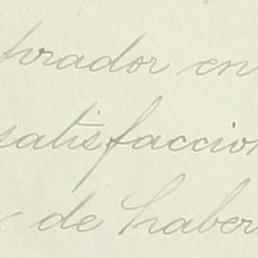 prador en
satisfaccion
de haber